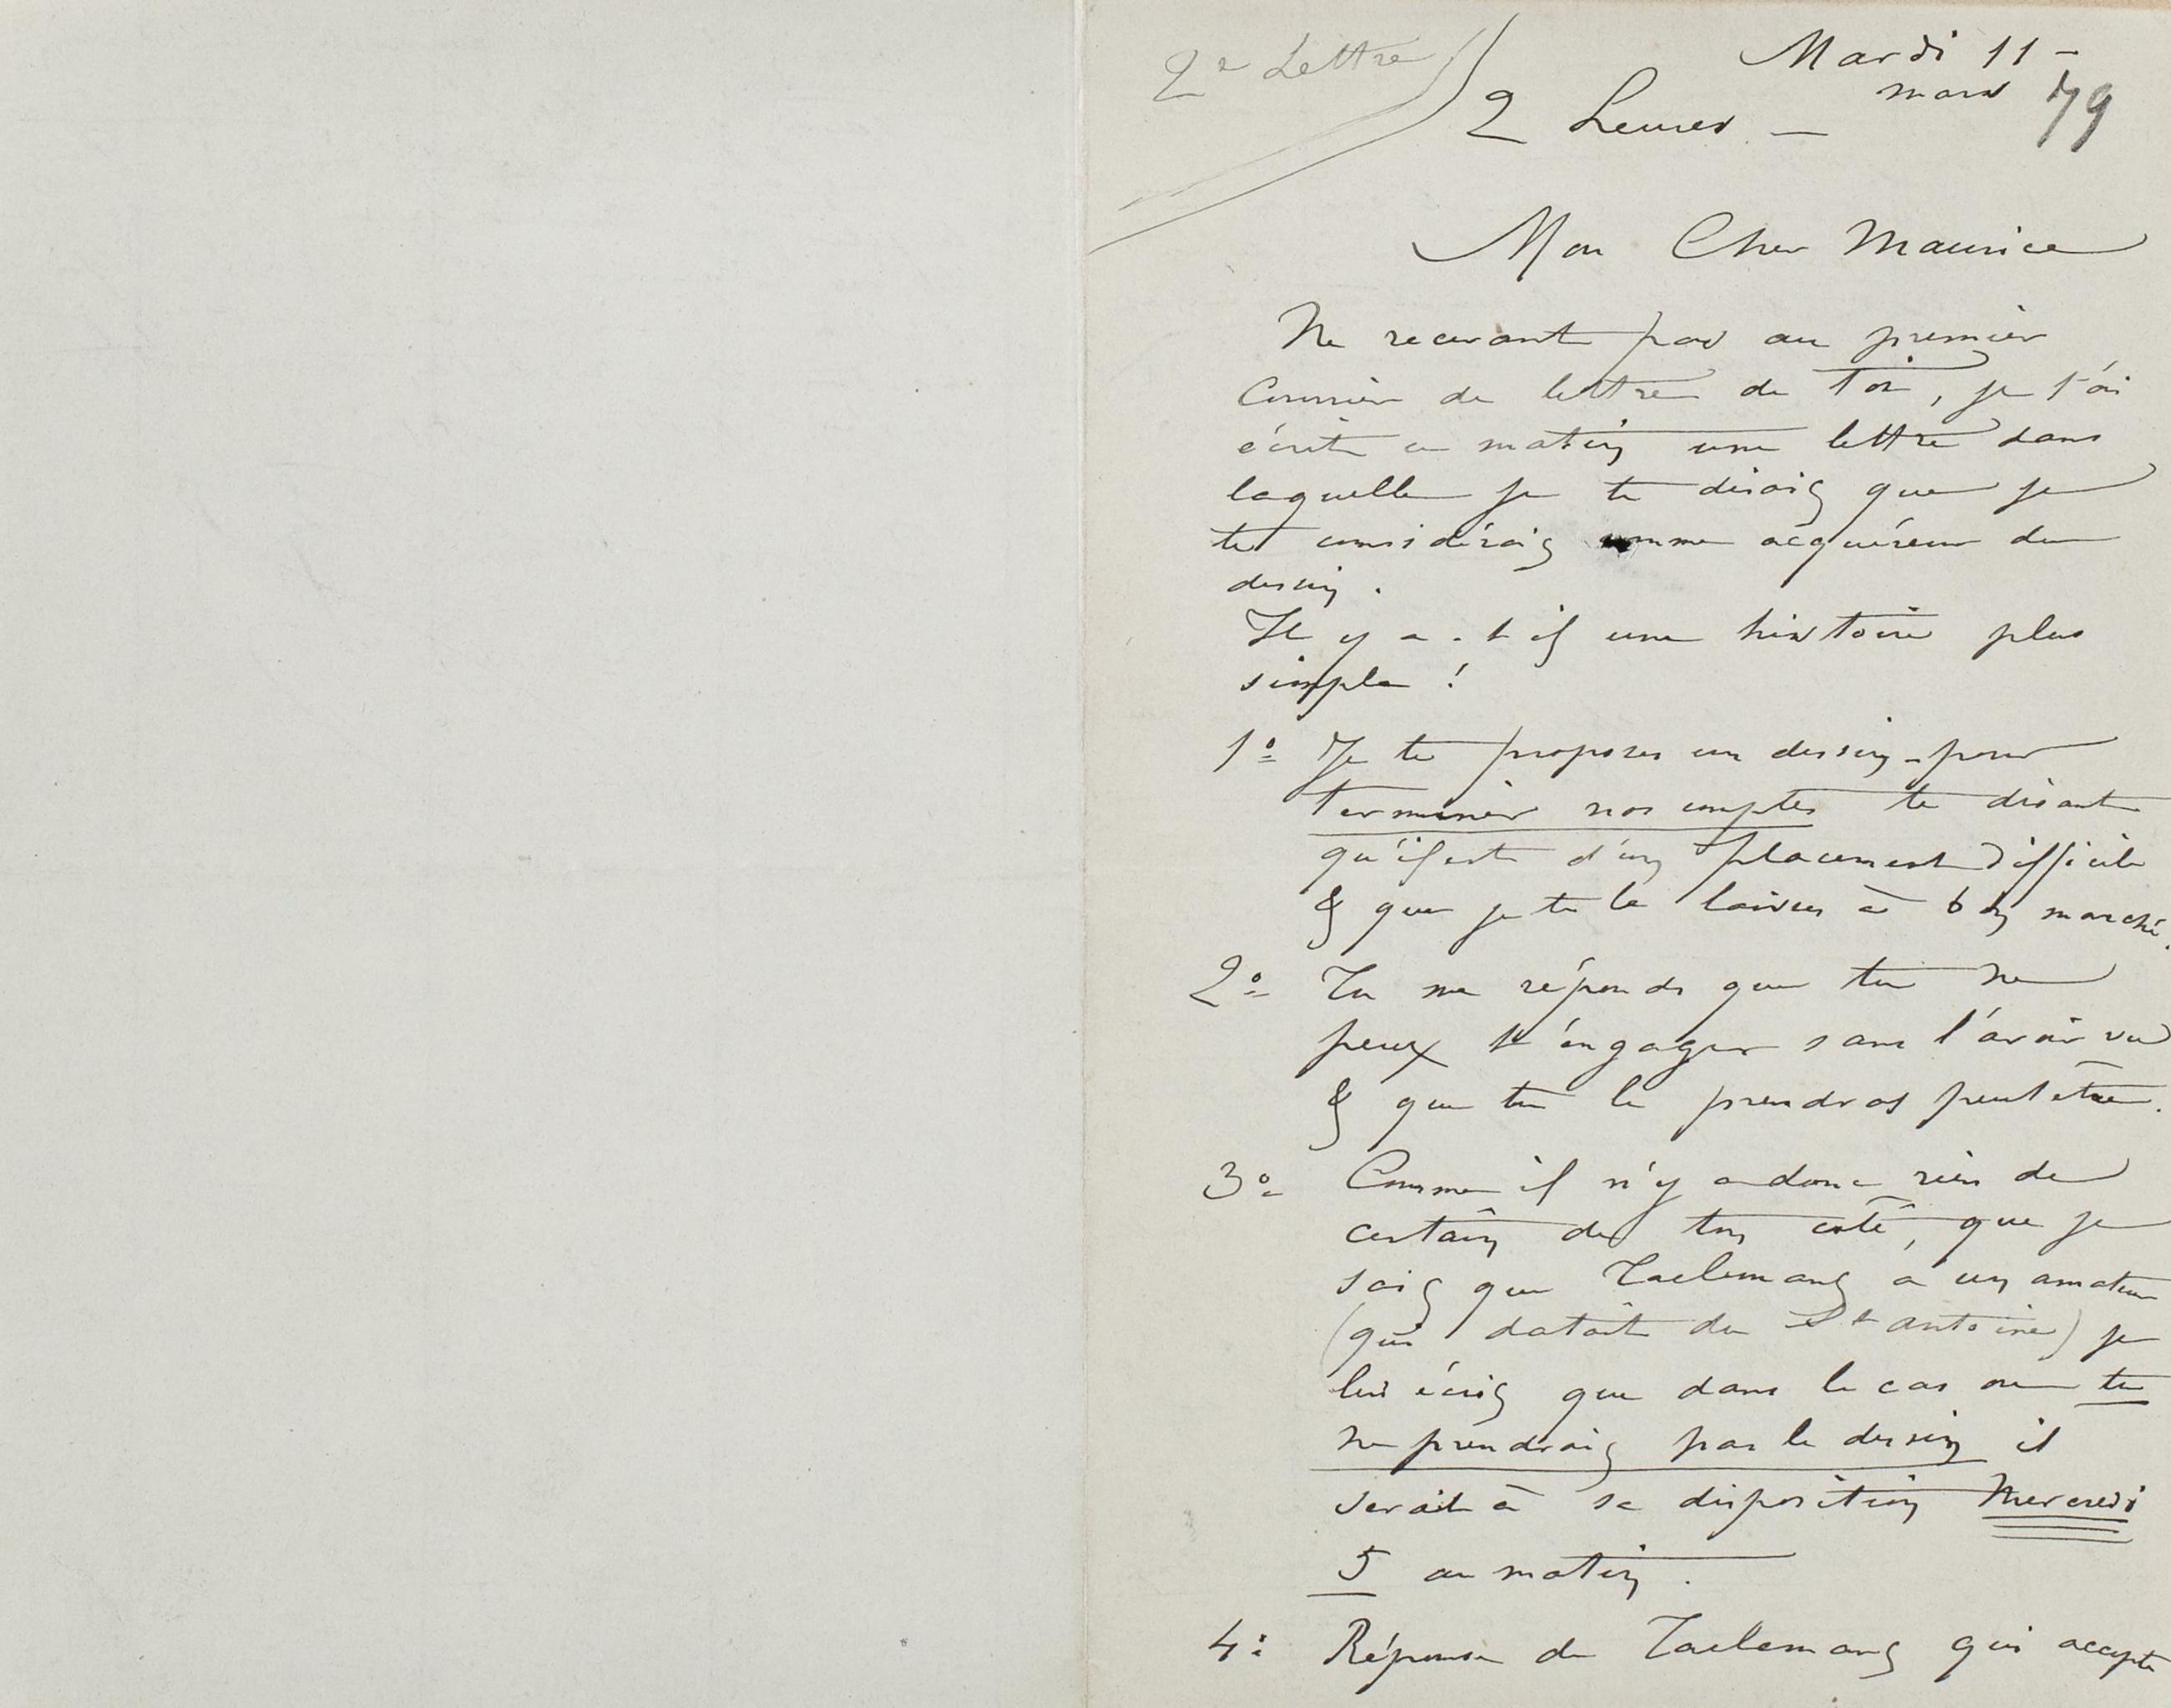 2e Lettre
Mardi 11 -
mars 79
2 heures —
Mon Cher Maurice
Ne recevant pas au premier
Courrier de lettre de toi, je t'ai
écrit ce matin une lettre dans
laquelle je te disais que je
te considérais comme acquéreur du
dessin.
Il y a-t-il une histoire plus
simple !
1º Je te propose un dessin - pour
terminer nos comptes te disant
qu'il est d'un placement difficile
& que je te le laisse à bon marché.
2º Tu me réponds que tu ne
peux t'engager sans l'avoir vu
& que tu le prendras peut être.
3º Comme il n'y a donc rien de
certain de ton côté, que je
sais que Taelemans a un amateur
(qui datait du St antoine) je
lui écris que dans le cas ou tu
ne prendrais pas le dessin il
serait à sa disposition Mercredi
5 au matin.
4º Réponse de Taelemans qui accepte